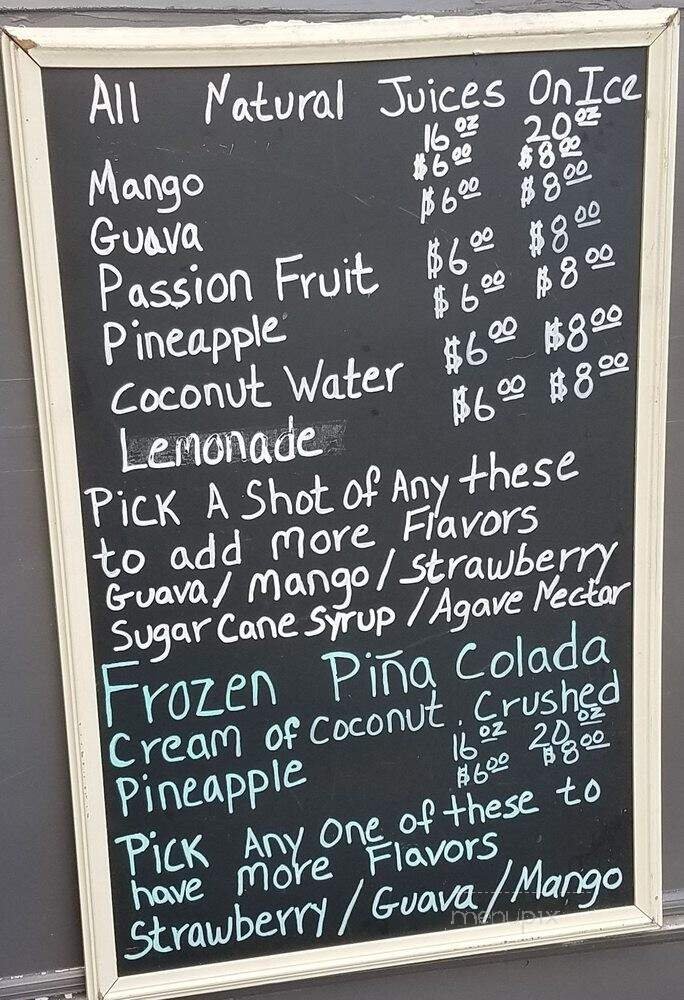 All Natural Juices On Ice
16 oz 20 oz
Mango $6.00 $8.00
Guava $6.00 $8.00
Passion Fruit $6.00 $8.00
Pineapple $6.00 $8.00
Coconut Water $6.00 $8.00
Lemonade $6.00 $8.00
Pick A Shot of Any these
to add more Flavors
Guava / Mango / Strawberry
Sugar Cane Syrup / Agave Nectar
Frozen Piña Colada
Cream of Coconut . Crushed
Pineapple 16 oz $6.00 20 oz $8.00
Pick Any One of these to
have more Flavors
Strawberry / Guava / Mango
menupix